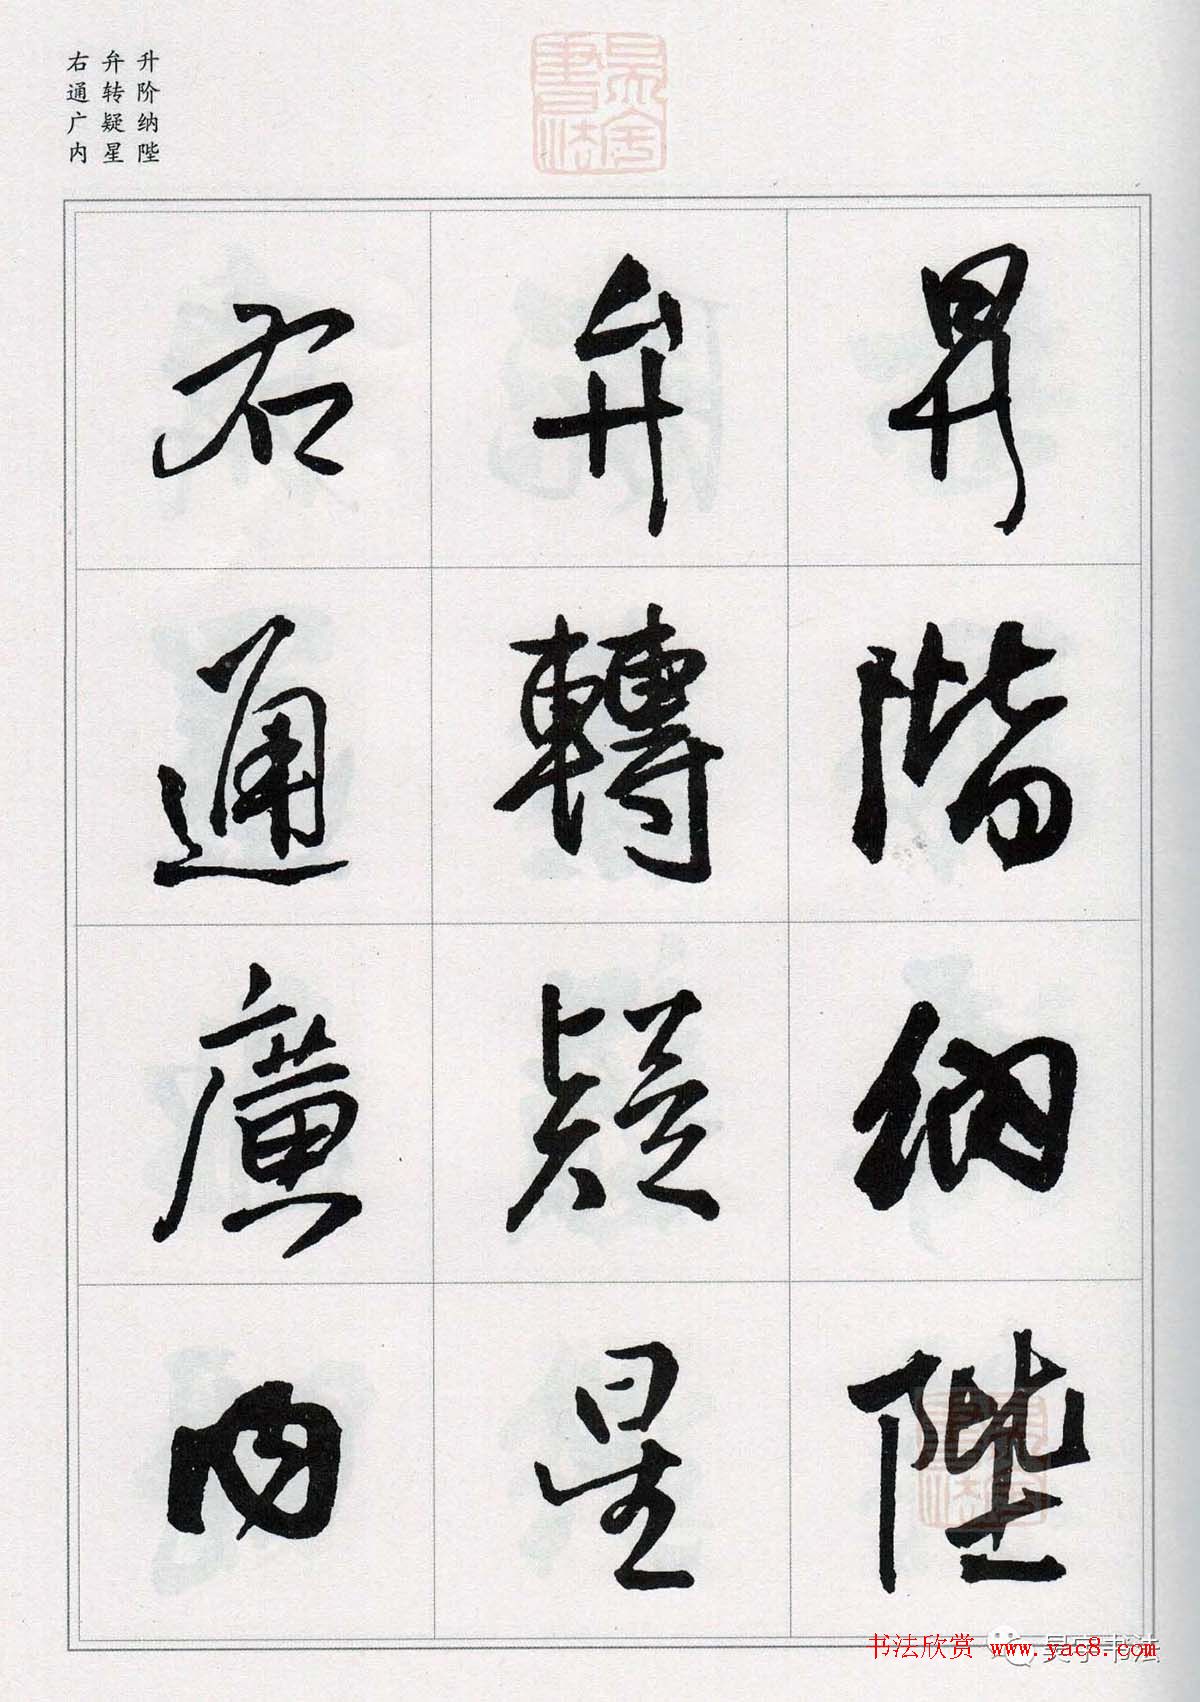 升阶纳陛
弁转疑星
右通广内
昇階納陛
弁轉疑星
右通廣内
书法欣赏 www.yac8.com